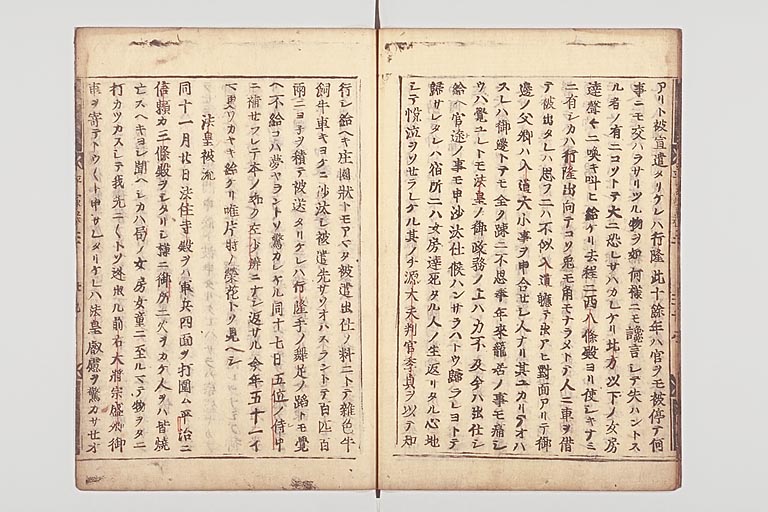 アリト被宣遣タリケレハ行隆此十餘年ハ官ヲモ被停テ何
事ニモ交ハラサリツル物ヲ如何樣ニモ讒言シテ失ハントス
ル者ノ有ニコソトテ大ニ恐レサハカレケリ北方以下ノ女房
達聲々ニ喚キ叫ヒ給ケリ去程ニ西八條殿ヨリ使シキナミ
ニ有シカハ行隆出向テコソ兎モ角モナラメトテ人ニ車ヲ借
テ被出タレハ思フニハ不似入道軈テ出アヒ對面アリテ御
邊ノ父卿ハ入道大小事ヲ申合セシ人ナリ其ユカリテオハ
スレハ御邊トテモ全ク疎ニ不思年來籠居ノ事モ痛シ
ウハ覺ユレトモ法皇ノ御政務ノ上ハ力不及今ハ出仕シ
給ヘ官途ノ事モ申沙汰仕候ハンサラハトウ歸ラレヨトテ
歸サレタレハ宿所ニハ女房達死タル人ノ生返リタル心地
シテ悦泣ヲソセラレケル其ノチ源大夫判官季貞ヲ以テ知
行シ給ヘキ庄園狀トモアマタ被遣出仕ノ料ニトテ雜色牛
飼牛車キヨケニ沙汰シ被遣先サソオハスラントテ百匹百
兩ニヨネヲ積テ被送タリケレハ行隆手ノ舞足ノ蹈トモ覺
ヘ不給コハ夢ヤラントソ驚カレケル同十七日五位ノ侍中
ニ補セラレテ本ノ如ク左少辨ニナシ返サル今年五十一イ
マ更ワカヤキ給ケリ唯片時ノ榮花トソ見ヘシ
法皇被流
同十一月廿日法住寺殿ヲハ軍兵四面ヲ打圍ム平治ニ
信賴カ三條殿ヲシタリシ樣ニ御所ニ火ヲカケ人ヲハ皆燒
亡スヘキヨシ聞ヘシカハ局ノ女房女童ニ至ルマテ物ヲタニ
打カツカスシテ我先ニトソ迷出ル前右大將宗盛卿御
車ヲ寄テトウ〱ト申サレタリケレハ法皇叡慮ヲ驚カサセオ